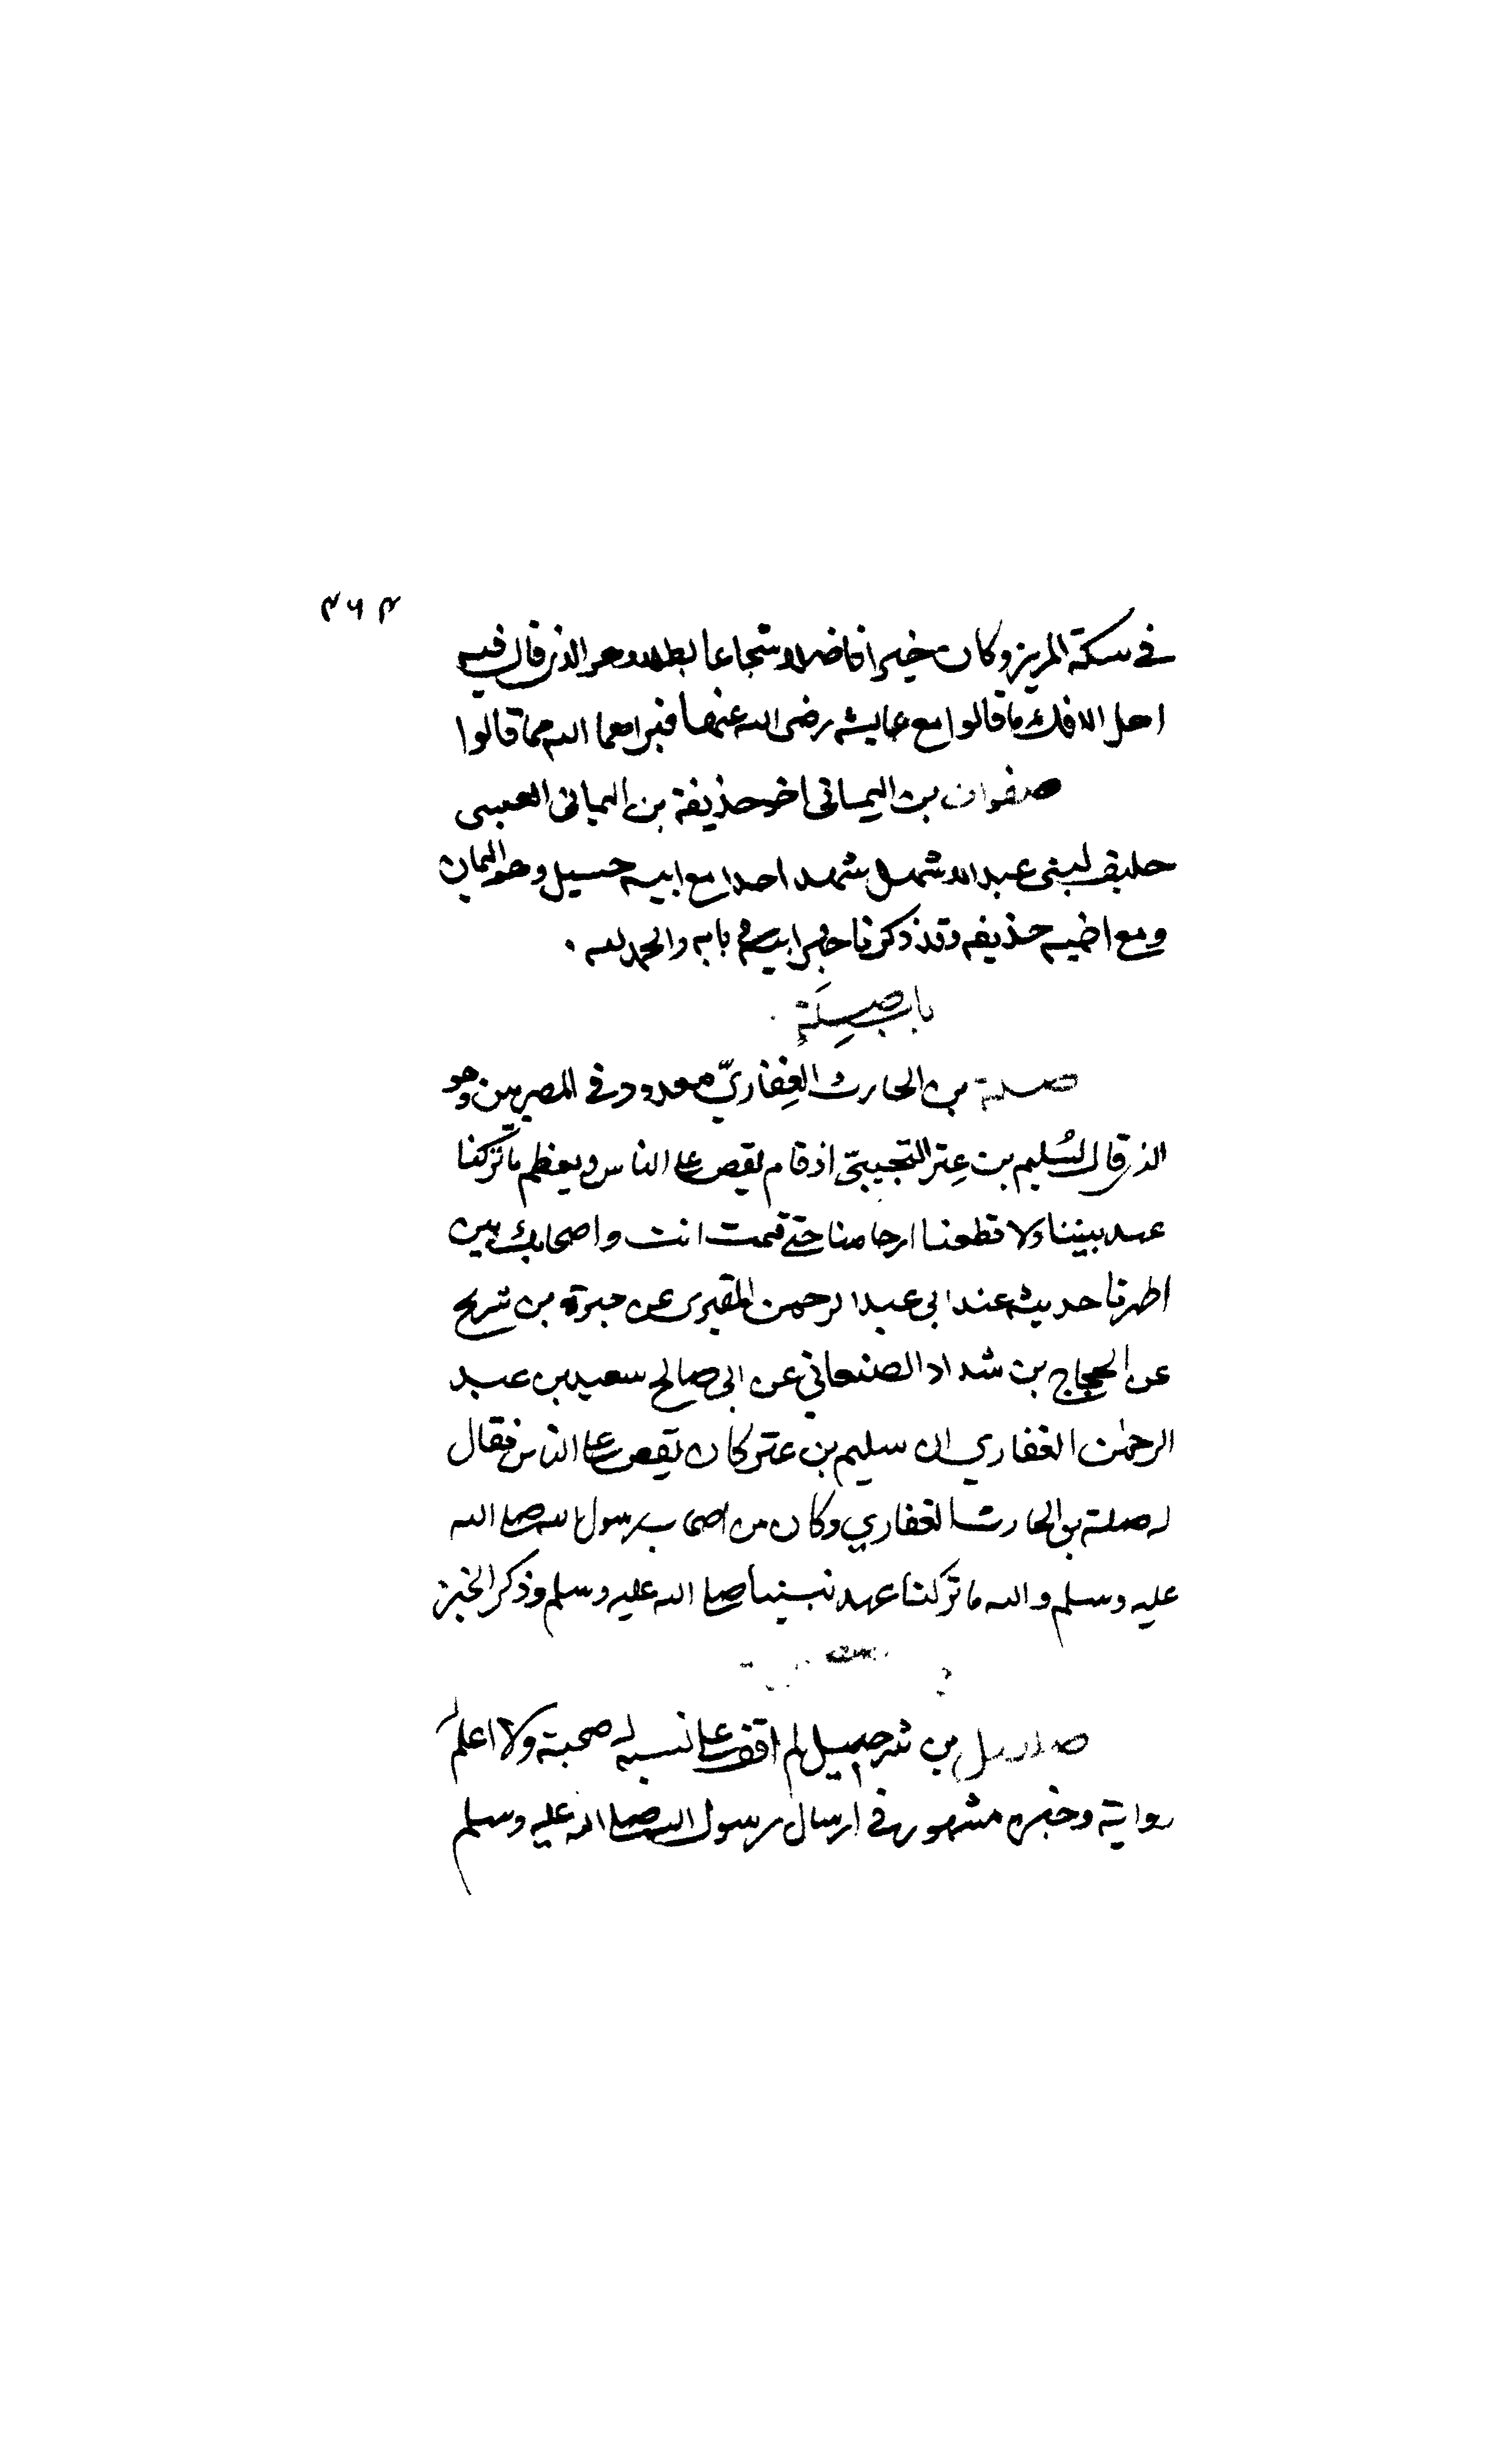 ٣٦٣
في سكة المربز وكان خيرا فاضلا شجاعا بطلا وهو الذي قال فيه
اهل الافك ما قالوا مع عايشه رضي الله عنها فبراهما الله مما قالوا
صفوان بن اليماني اخو حذيفة بن اليماني العبسي
حليف لبني عبد الاشهل شهد احدا مع ابيه حسيل وهو اليمان
ومع اخيه حذيفه وقد ذكرنا خبر ابيه في بابه والحمد لله .
باب صِلَة
صلة بن الحارث الغِفاريّ معدود في المصريين وهو
الذي قال لسُليم بن عِتر التجيبيّ اذ قام يقص على الناس ويعظم ما تركنا
عهد نبينا ولا قطعنا ارحامنا حتى قمت انت واصحابك بين
اظهرنا حديثه عند ابي عبد الرحمن المقبري عن حيوة بن شريح
عن الحجاج بن شداد الصنعاني عن ابي صالح سعيد بن عبد
الرحمن الغفاري ان سليم بن عتر كان يقص على الناس فقال
له صلة بن الحارث الغفاري وكان من اصحاب رسول الله صلى الله
عليه وسلم والله ما تركنا عهد نبينا صلى الله عليه وسلم وذكر الخبر
بن شرحبيل لم اقف على نسبه له صحبة ولا اعلم له
رواية وخبره مشهور في ارسال رسول الله صلى الله عليه وسلم